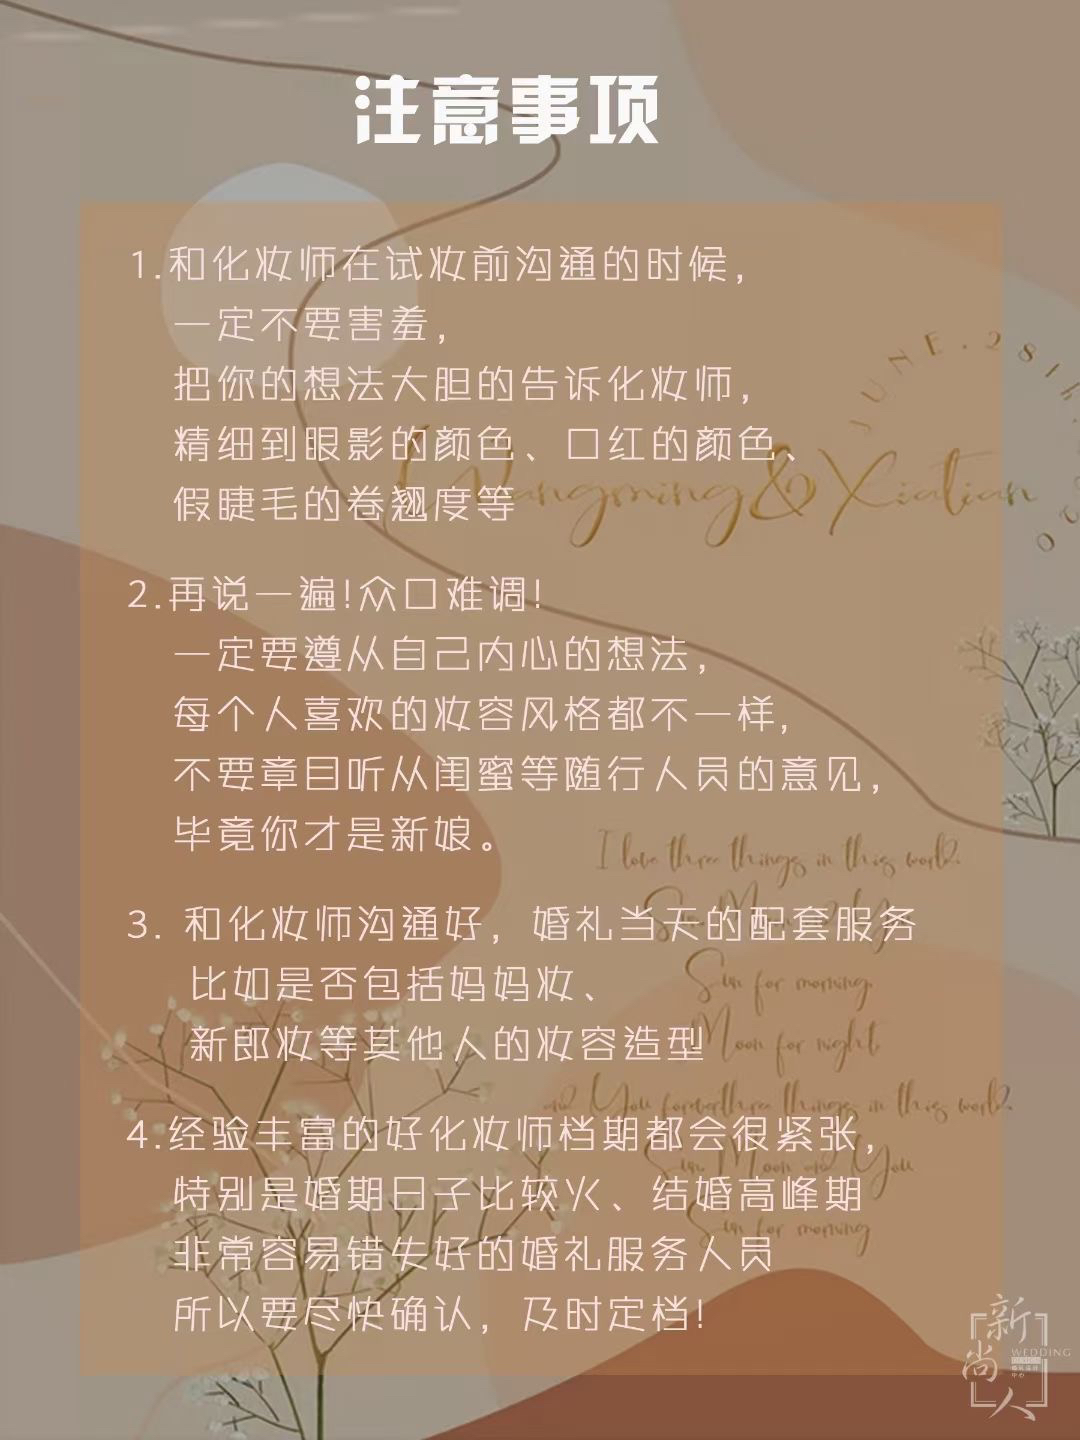 注意事项
1.和化妆师在试妆前沟通的时候，
一定不要害羞，
把你的想法大胆的告诉化妆师，
精细到眼影的颜色、口红的颜色、
假睫毛的卷翘度等
JUNE.28th.
Xiatian
2.再说一遍!众口难调!
一定要遵从自己内心的想法，
每个人喜欢的妆容风格都不一样，
不要章目听从闺蜜等随行人员的意见，
毕竟你才是新娘。
I love three things in this world.
3. 和化妆师沟通好，婚礼当天的配套服务
比如是否包括妈妈妆、
Sun for morning
新郎妆等其他人的妆容造型
Moon for night
and You forever three things in this world.
4.经验丰富的好化妆师档期都会很紧张，
Sun Moon and You
特别是婚期日子比较火、结婚高峰期
Sun for morning
非常容易错失好的婚礼服务人员
所以要尽快确认，及时定档!
新尚人
WEDDING